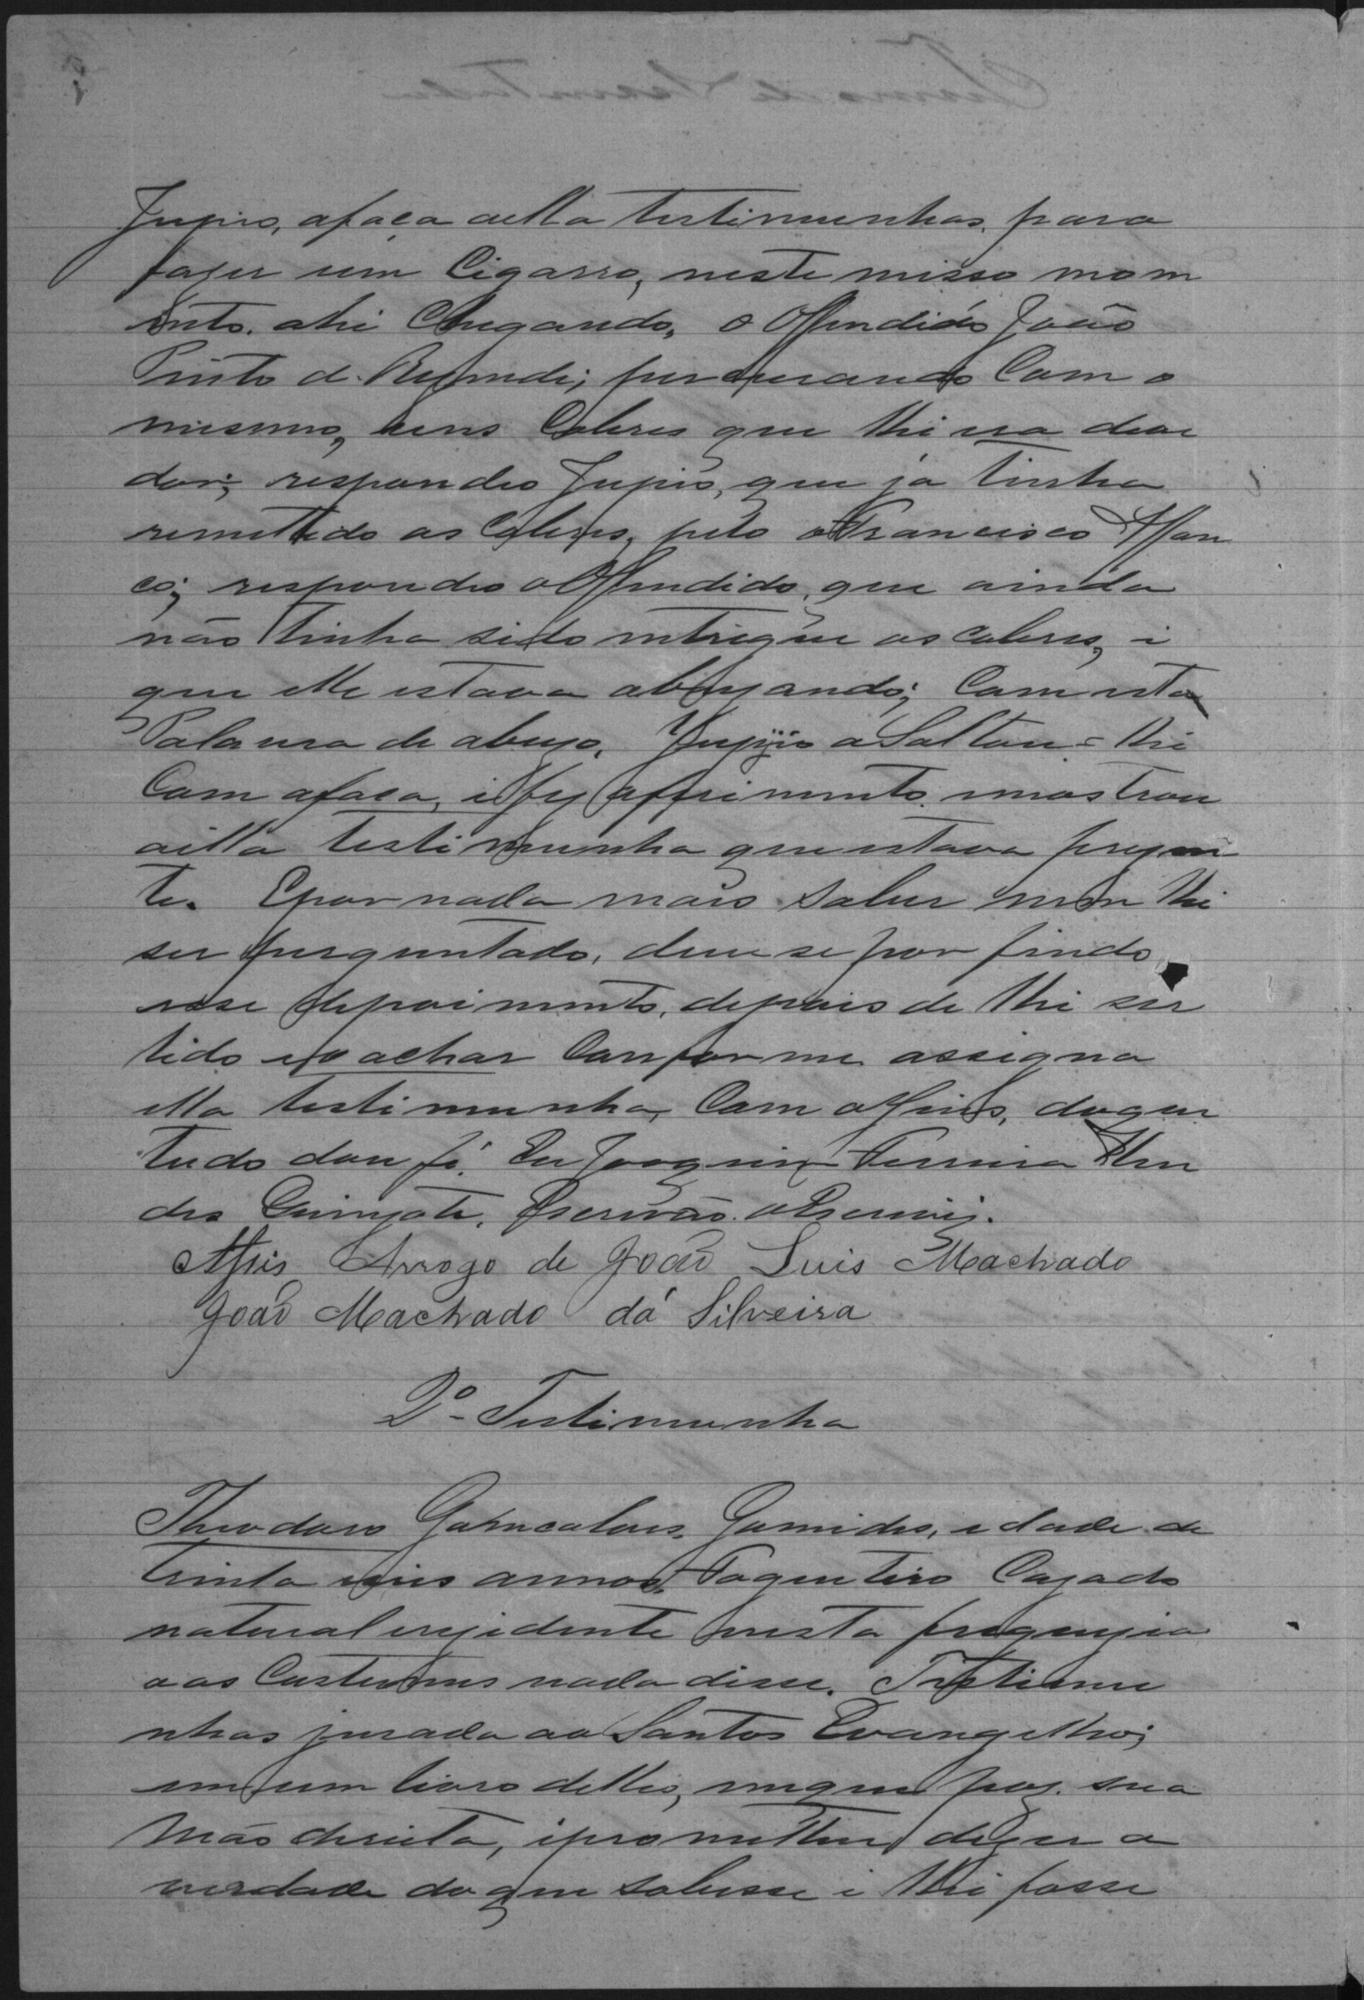 Jupio, afaca aella testimunhas para
fazer um Cigarro, neste misso mom
ento. ahi Chegando, o Offendido João
Pinto de Rezende; percurando Com o
mesmo, uns Cobres que lhi era deve
dor; respondeo Jupio, que já tinha
remettido os Cobres, pelo o Francisco
respondeo o Offendido, que ainda
não tinha sido intregue os cobres, i
que elle estava abuzando; Com esta
Palavra de abuzo, Jupio a Saltou-lhi
Com afaca, i fez offerimento. mostrou
aella testimunha que estava prezen
te. Epor nada mais saber nem lhi
ser perguntado, deu se por findo
esse depoimento, depois de lhi ser
lido e o achar Comforme assigna
ella testimunha, Com o Juis, do que
tudo dou fé. Eu Joaquim Ferreira
Escrivão. o Escrevi.
Assis Arrogo de João Luis Machado
João Machado dá Silveira
2ª- Testimunha
Theodoro Goncalves, idade de
trinta seis annos, Cazado
natural erezidente nesta freguezia
aos Custumes nada disse. Testimu
nhas jurada ao Santos Evangelhos;
em um livro delles, emque poz. sua
Mão direita, iprometteu dizer a
verdade do que soubesse i lhi fosse